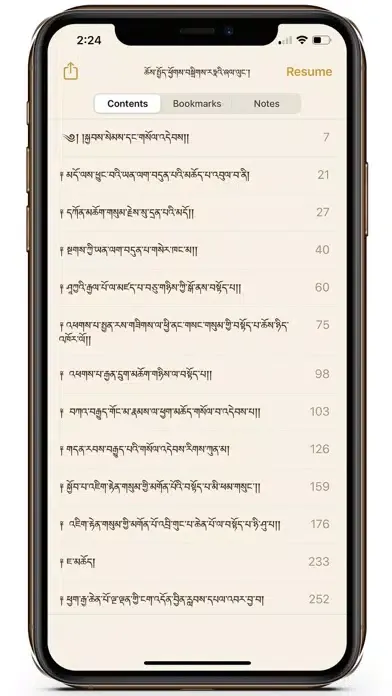 2:24
ཆོས་སྤྱོད་ཕྱོགས་བསྒྲིགས་རཏྣའི་ཞལ་ལུང་།
Resume
Contents
Bookmarks
Notes
༄༅། །སྐྱབས་སེམས་དང་གསོལ་འདེབས།། 7
༈ མདོ་ལས་ཕྱུང་བའི་ཡན་ལག་བདུན་པའི་མཆོད་པ་འབུལ་བ་ནི། 21
༈ དཀོན་མཆོག་གསུམ་རྗེས་སུ་དྲན་པའི་མདོ།། 27
༈ སྔགས་ཀྱི་ཡན་ལག་བདུན་པ་གསེར་ཁང་མ།། 40
༈ ཤཱཀྱའི་རྒྱལ་པོ་ལ་མཛད་པ་བཅུ་གཉིས་ཀྱི་སྒོ་ནས་བསྟོད་པ།། 60
༈ འཕགས་པ་སྤྱན་རས་གཟིགས་ལ་ཕྱི་ནང་གསང་གསུམ་གྱི་བསྟོད་པ་ཆོས་ཉིད་ 75
འཁོར་ལོ།།
༈ འཕགས་པ་རྒྱན་དྲུག་མཆོག་གཉིས་ལ་བསྟོད་པ།། 98
༈ བཀའ་བརྒྱུད་གོང་མ་རྣམས་ལ་ཕྱག་མཆོད་གསོལ་བ་འདེབས་པ།། 103
༈ གདན་རབས་བརྒྱུད་པའི་གསོལ་འདེབས་རིགས་ཀུན་མ། 126
༈ སྐྱོབ་པ་འཇིག་རྟེན་གསུམ་གྱི་མགོན་པོའི་བསྟོད་པ་མི་ཕམ་གསུང་།། 159
༈ འཇིག་རྟེན་གསུམ་གྱི་མགོན་པོ་འབྲི་གུང་པ་ཆེན་པོ་ལ་བསྟོད་པ་ཧི་ཤུ་པ།། 176
༈ ཇ་མཆོད། 233
༈ ཕྱག་རྒྱ་ཆེན་པོ་ལྔ་ལྡན་གྱི་ངག་འདོན་བྱིན་རླབས་དཔལ་འབར་བྱ་བ། 252